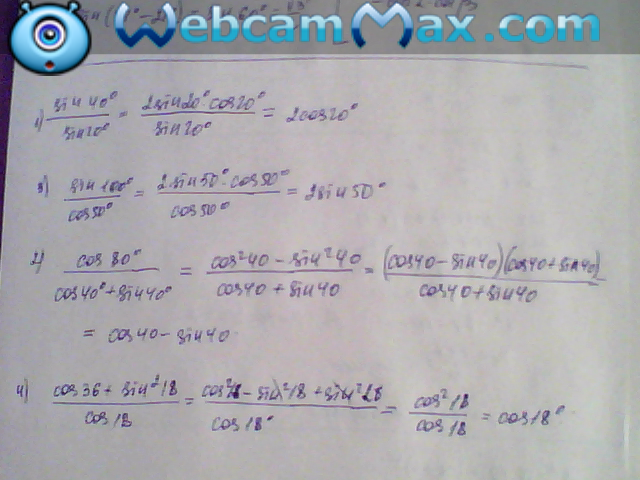 WebcamMax.com
1) sin 40° / sin 20° = 2 sin 20° · cos 20° / sin 20° = 2 cos 20°
3) sin 100° / cos 50° = 2 sin 50° · cos 50° / cos 50° = 2 sin 50°
2) cos 80° / cos 40° + sin 40° = cos² 40 − sin² 40 / cos 40 + sin 40 = (cos 40 − sin 40)(cos 40 + sin 40) / cos 40 + sin 40
= cos 40 − sin 40
4) cos 36 + sin² 18 / cos 18 = cos² 18 − sin² 18 + sin² 18 / cos 18° = cos² 18 / cos 18 = cos 18°